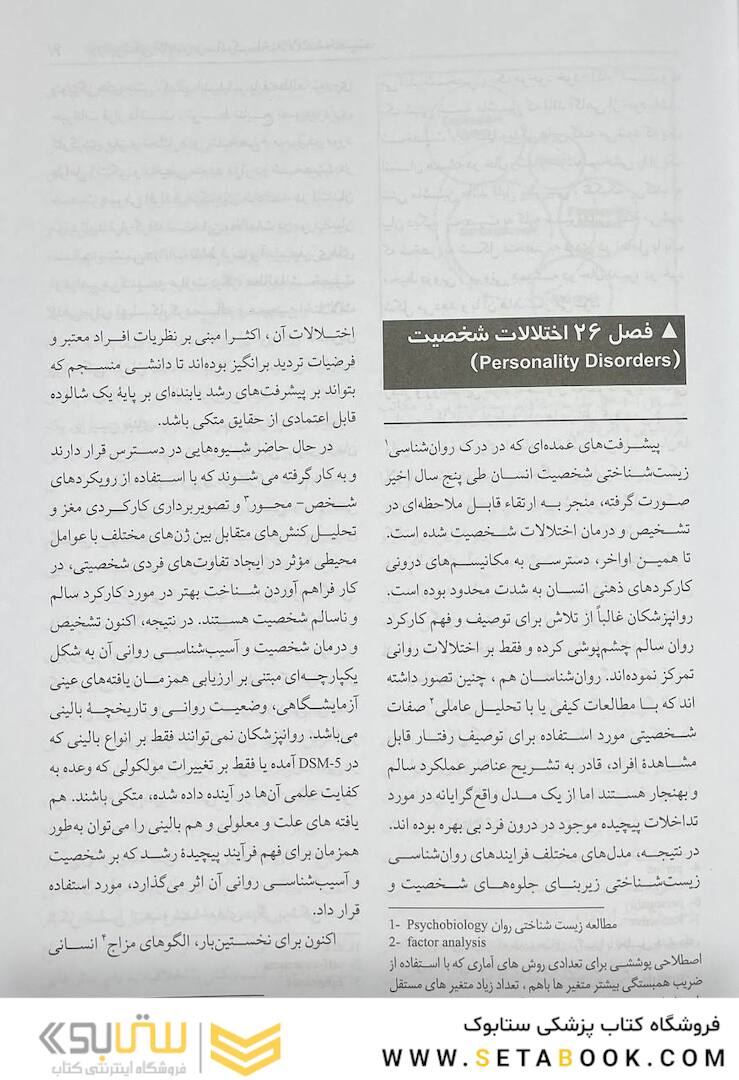 ▲ فصل ۲۶ اختلالات شخصیت
(Personality Disorders)
پیشرفت‌های عمده‌ای که در درک روان‌شناسی۱
زیست‌شناختی شخصیت انسان طی پنج سال اخیر
صورت گرفته، منجر به ارتقاء قابل ملاحظه‌ای در
تشخیص و درمان اختلالات شخصیت شده است.
تا همین اواخر، دسترسی به مکانیسم‌های درونی
کارکردهای ذهنی انسان به شدت محدود بوده است.
روانپزشکان غالباً از تلاش برای توصیف و فهم کارکرد
روان سالم چشم‌پوشی کرده و فقط بر اختلالات روانی
تمرکز نموده‌اند. روان‌شناسان هم ، چنین تصور داشته
اند که با مطالعات کیفی یا با تحلیل عاملی۲ صفات
شخصیتی مورد استفاده برای توصیف رفتار قابل
مشاهدهٔ افراد، قادر به تشریح عناصر عملکرد سالم
و بهنجار هستند اما از یک مدل واقع‌گرایانه در مورد
تداخلات پیچیده موجود در درون فرد بی بهره بوده اند.
در نتیجه، مدل‌های مختلف فرایندهای روان‌شناسی
زیست‌شناختی زیربنای جلوه‌های شخصیت و
1- Psychobiology مطالعه زیست شناختی روان
2- factor analysis
اصطلاحی پوششی برای تعدادی روش های آماری که با استفاده از
ضریب همبستگی بیشتر متغیر ها باهم ، تعداد زیاد متغیر های مستقل
اختلالات آن ، اکثرا مبنی بر نظریات افراد معتبر و
فرضیات تردید برانگیز بوده‌اند تا دانشی منسجم که
بتواند بر پیشرفت‌های رشد یابنده‌ای بر پایهٔ یک شالوده
قابل اعتمادی از حقایق متکی باشد.
در حال حاضر شیوه‌هایی در دسترس قرار دارند
و به کار گرفته می شوند که با استفاده از رویکردهای
شخص- محور۳ و تصویربرداری کارکردی مغز و
تحلیل کنش‌های متقابل بین ژن‌های مختلف با عوامل
محیطی مؤثر در ایجاد تفاوت‌های فردی شخصیتی، در
کار فراهم آوردن شناخت بهتر در مورد کارکرد سالم
و ناسالم شخصیت هستند. در نتیجه، اکنون تشخیص
و درمان شخصیت و آسیب‌شناسی روانی آن به شکل
یکپارچه‌ای مبتنی بر ارزیابی همزمان یافته‌های عینی
آزمایشگاهی، وضعیت روانی و تاریخچهٔ بالینی
می‌باشد. روانپزشکان نمی‌توانند فقط بر انواع بالینی که
در DSM-5 آمده یا فقط بر تغییرات مولکولی که وعده به
کفایت علمی آن‌ها در آینده داده شده، متکی باشند. هم
یافته های علت و معلولی و هم بالینی را می‌توان به‌طور
همزمان برای فهم فرآیند پیچیدهٔ رشد که بر شخصیت
و آسیب‌شناسی روانی آن اثر می‌گذارد، مورد استفاده
قرار داد.
اکنون برای نخستین‌بار، الگوهای مزاج۴ انسانی
فروشگاه کتاب پزشکی ستابوک
WWW.SETABOOK.COM
ستابوک
فروشگاه اینترنتی کتاب